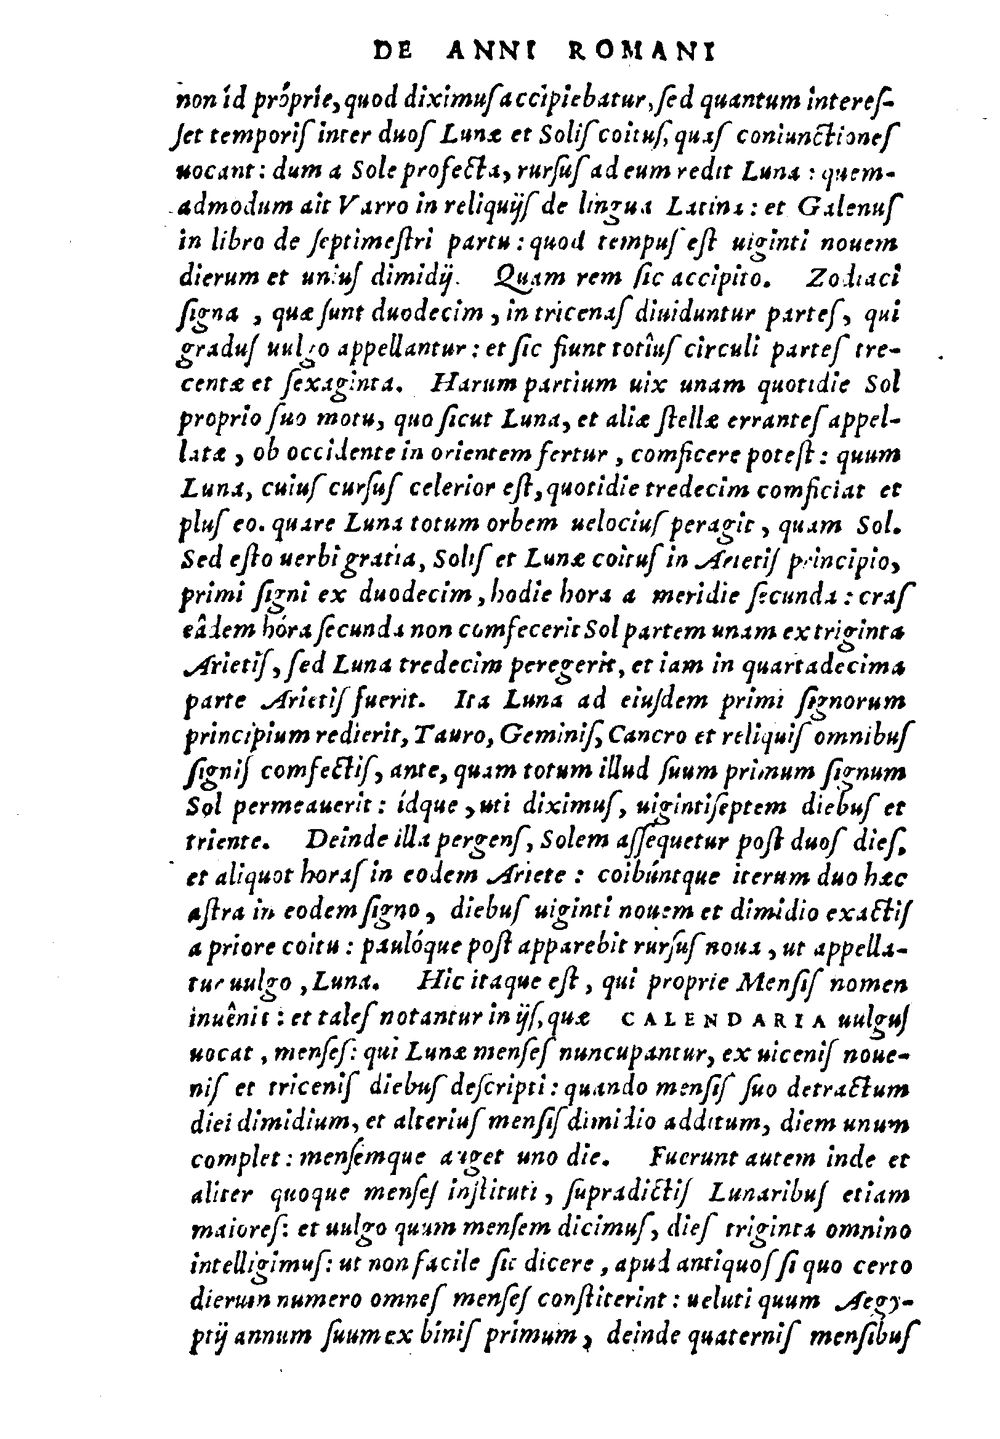 DE ANNI ROMANI
non id próprie, quod diximuſ accipiebatur, ſed quantum intereſ-
ſet temporiſ inter duoſ Lunæ et Soliſ coituſ, quaſ coniunctioneſ
uocant: dum a Sole profecta, rurſuſ ad eum redit Luna: quem-
admodum ait Varro in reliquijſ de lingua Latina: et Galenuſ
in libro de ſeptimeſtri partu: quod tempuſ eſt uiginti nouem
dierum et uniuſ dimidij. Quam rem ſic accipito. Zodiaci
ſigna, quæ ſunt duodecim, in tricenaſ diuiduntur parteſ, qui
graduſ uulgo appellantur: et ſic fiunt totîuſ circuli parteſ tre-
centæ et ſexaginta. Harum partium uix unam quotidie Sol
proprio ſuo motu, quo ſicut Luna, et aliæ ſtellæ erranteſ appel-
latæ, ob occidente in orientem fertur, comficere poteſt: quum
Luna, cuiuſ curſuſ celerior eſt, quotidie tredecim comficiat et
pluſ eo. quare Luna totum orbem uelociuſ peragit, quam Sol.
Sed eſto uerbi gratia, Soliſ et Lunæ coituſ in Arietiſ principio,
primi ſigni ex duodecim, hodie hora a meridie ſecunda: craſ
eâdem hóra ſecunda non comfecerit Sol partem unam ex triginta
Arietiſ, ſed Luna tredecim peregerit, et iam in quartadecima
parte Arietiſ fuerit. Ita Luna ad eiuſdem primi ſignorum
principium redierit, Tauro, Geminiſ, Cancro et reliquiſ omnibuſ
ſigniſ comfectiſ, ante, quam totum illud ſuum primum ſignum
Sol permeauerit: ídque, uti diximuſ, uigintiſeptem diebuſ et
triente. Deinde illa pergenſ, Solem aſſequetur poſt duoſ dieſ,
et aliquot horaſ in eodem Ariete: coibúntque iterum duo hæc
aſtra in eodem ſigno, diebuſ uiginti nouem et dimidio exactiſ
a priore coitu: paulóque poſt apparebit rurſuſ noua, ut appella-
tur uulgo, Luna. Hic itaque eſt, qui proprie Menſiſ nomen
inuênit: et taleſ notantur in ijſ, quæ CALENDARIA uulguſ
uocat, menſeſ: qui Lunæ menſeſ nuncupantur, ex uiceniſ noue-
niſ et triceniſ diebuſ deſcripti: quando menſiſ ſuo detractum
diei dimidium, et alteriuſ menſiſ dimidio additum, diem unum
complet: menſémque auget uno die. Fuerunt autem inde et
aliter quoque menſeſ inſtituti, ſupradictiſ Lunaribuſ etiam
maioreſ: et uulgo quum menſem dicimuſ, dieſ triginta omnino
intelligimuſ: ut non facile ſic dicere, apud antiquoſ ſi quo certo
dierum numero omneſ menſeſ conſtiterint: ueluti quum Aegy-
ptij annum ſuum ex biniſ primum, deinde quaterniſ menſibuſ